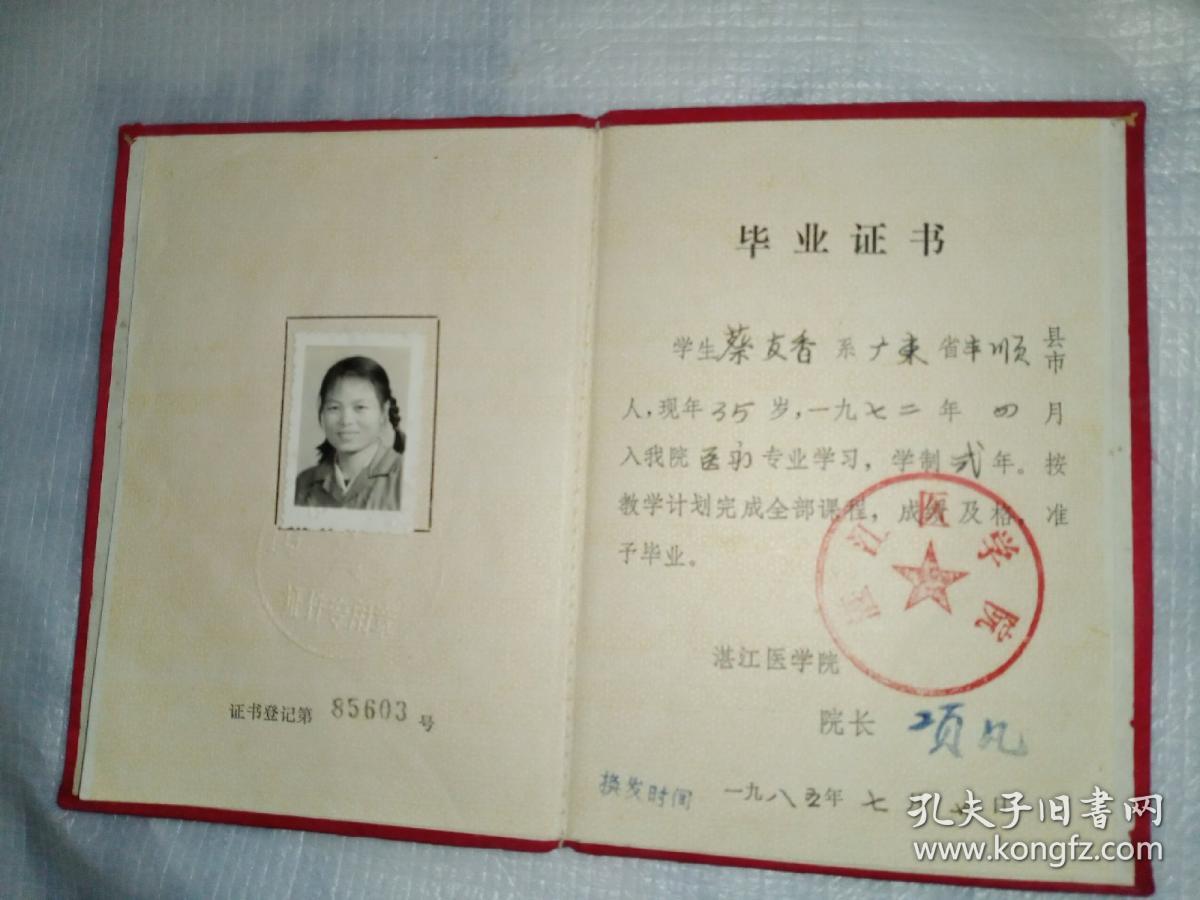 证件专用章
证书登记第 85603 号
毕业证书
学生蔡友香系广东省丰顺县市
人，现年35岁，一九七二年四月
入我院医疗专业学习，学制弍年。按
教学计划完成全部课程，成绩及格，准
予毕业。
湛江医学院
湛江医学院
院长 项凡
换发时间 一九八五年七
孔夫子旧书网
www.kongfz.com